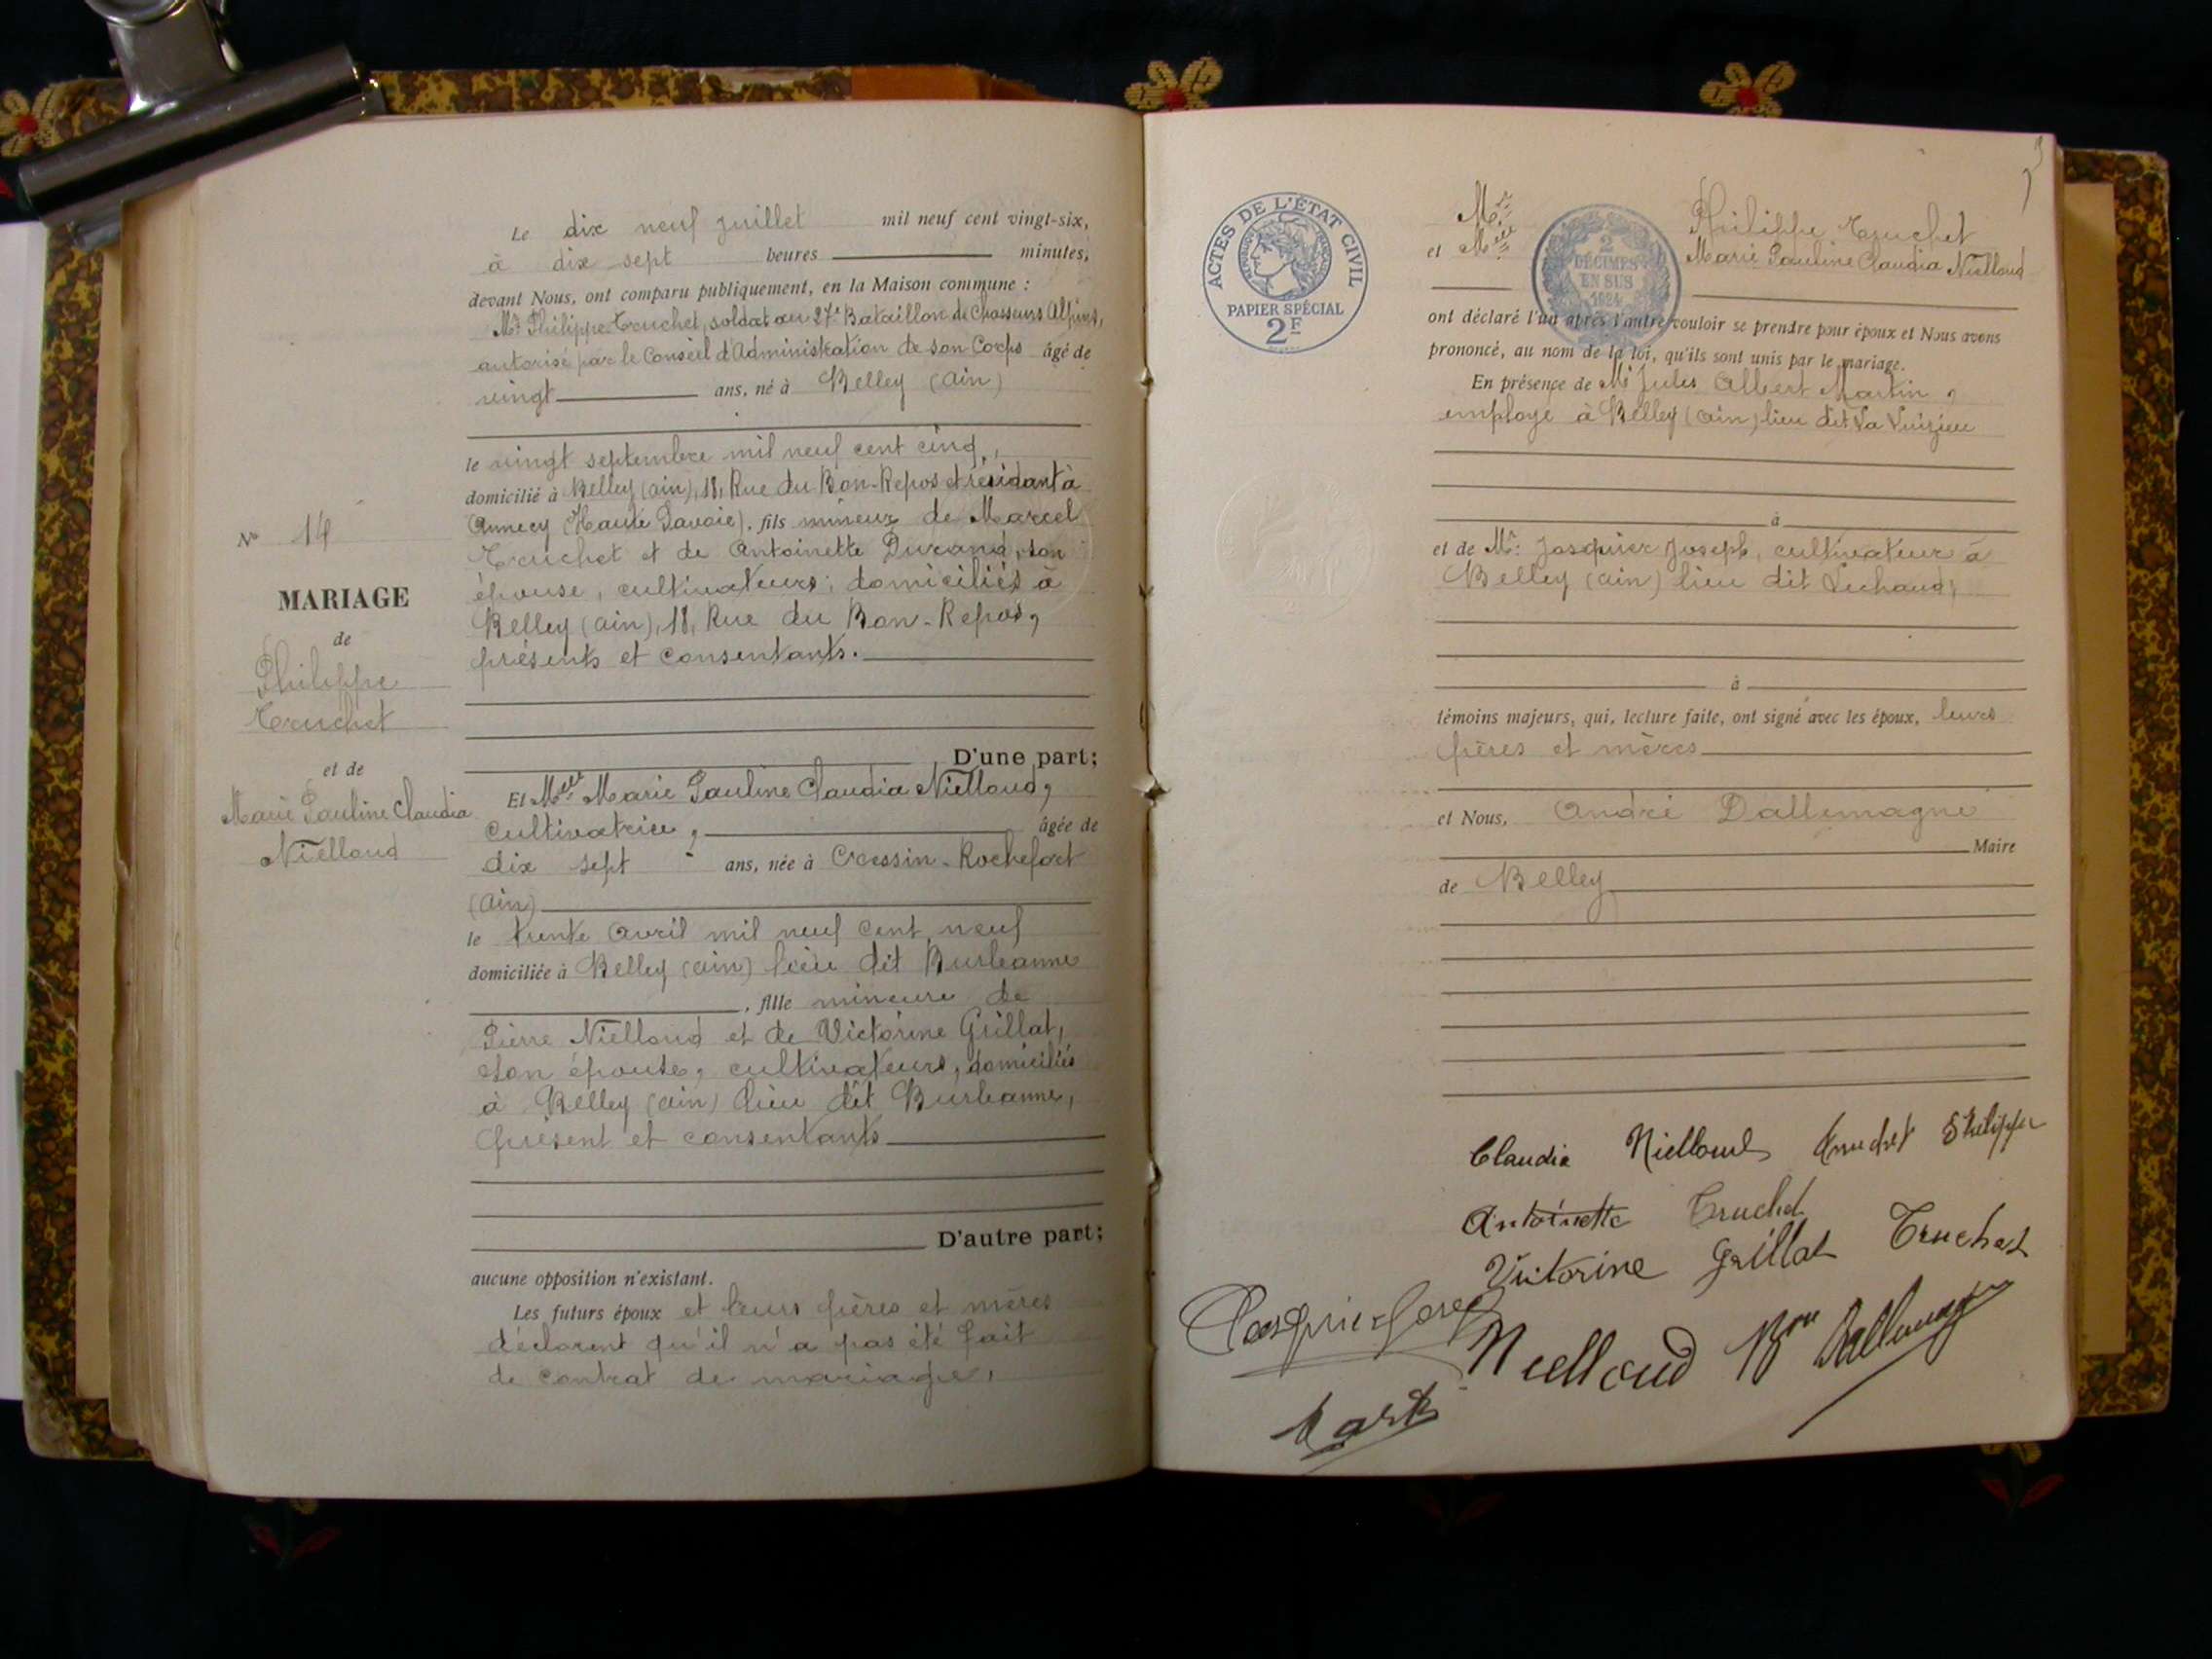 Le dix neuf juillet mil neuf cent vingt-six,
à dix sept heures minutes,
devant Nous, ont comparu publiquement, en la Maison commune :
Mr Philippe Truchet, soldat au 27e Bataillon de Chasseurs Alpins,
autorisé par le Conseil d'Administration de son Corps âgé de
vingt ans, né à Belley (Ain)
le vingt septembre mil neuf cent cinq,
domicilié à Belley (Ain), 18, Rue du Bon-Repos et résidant à
Annecy (Haute Savoie). fils mineur de Marcel
Truchet et de Antoinette Durand, son
épouse, cultivateurs, domiciliés à
Belley (Ain), 18, Rue du Bon-Repos,
présents et consentants.
D'une part;
Et Melle Marie Pauline Claudia Nielloud,
Cultivatrice, âgée de
dix sept ans, née à Cressin-Rochefort
(Ain)
le trente Avril mil neuf cent neuf
domiciliée à Belley (Ain) lieu dit Burbanne
, fille mineure de
Pierre Nielloud et de Victorine Grillat,
son épouse, cultivateurs, domiciliés
à Belley (Ain) lieu dit Burbanne,
présent et consentants
D'autre part;
aucune opposition n'existant.
Les futurs époux et leurs pères et mères
déclarent qu'il n'a pas été fait
de contrat de mariage,
No 14
MARIAGE
de
Philippe
Truchet
et de
Marie Pauline Claudia
Nielloud
ACTES DE L'ÉTAT CIVIL
PAPIER SPÉCIAL
2F
2
DÉCIMES
EN SUS
1924
Mr Philippe Truchet
et Melle Marie Pauline Claudia Nielloud
ont déclaré l'un après l'autre vouloir se prendre pour époux et Nous avons
prononcé, au nom de la loi, qu'ils sont unis par le mariage.
En présence de Mr Jules Albert Martin,
employé à Belley (Ain) lieu dit La
à
et de Mr: Josquier Joseph, cultivateur à
Belley (Ain) lieu dit
à
témoins majeurs, qui, lecture faite, ont signé avec les époux, leurs
pères et mères
et Nous, André Dallemagne
Maire
de Belley
Claudia Nielloud Truchet Philippe
Antoinette Truchet
Victorine Grillat Truchet
Nielloud Bon Dallemagne